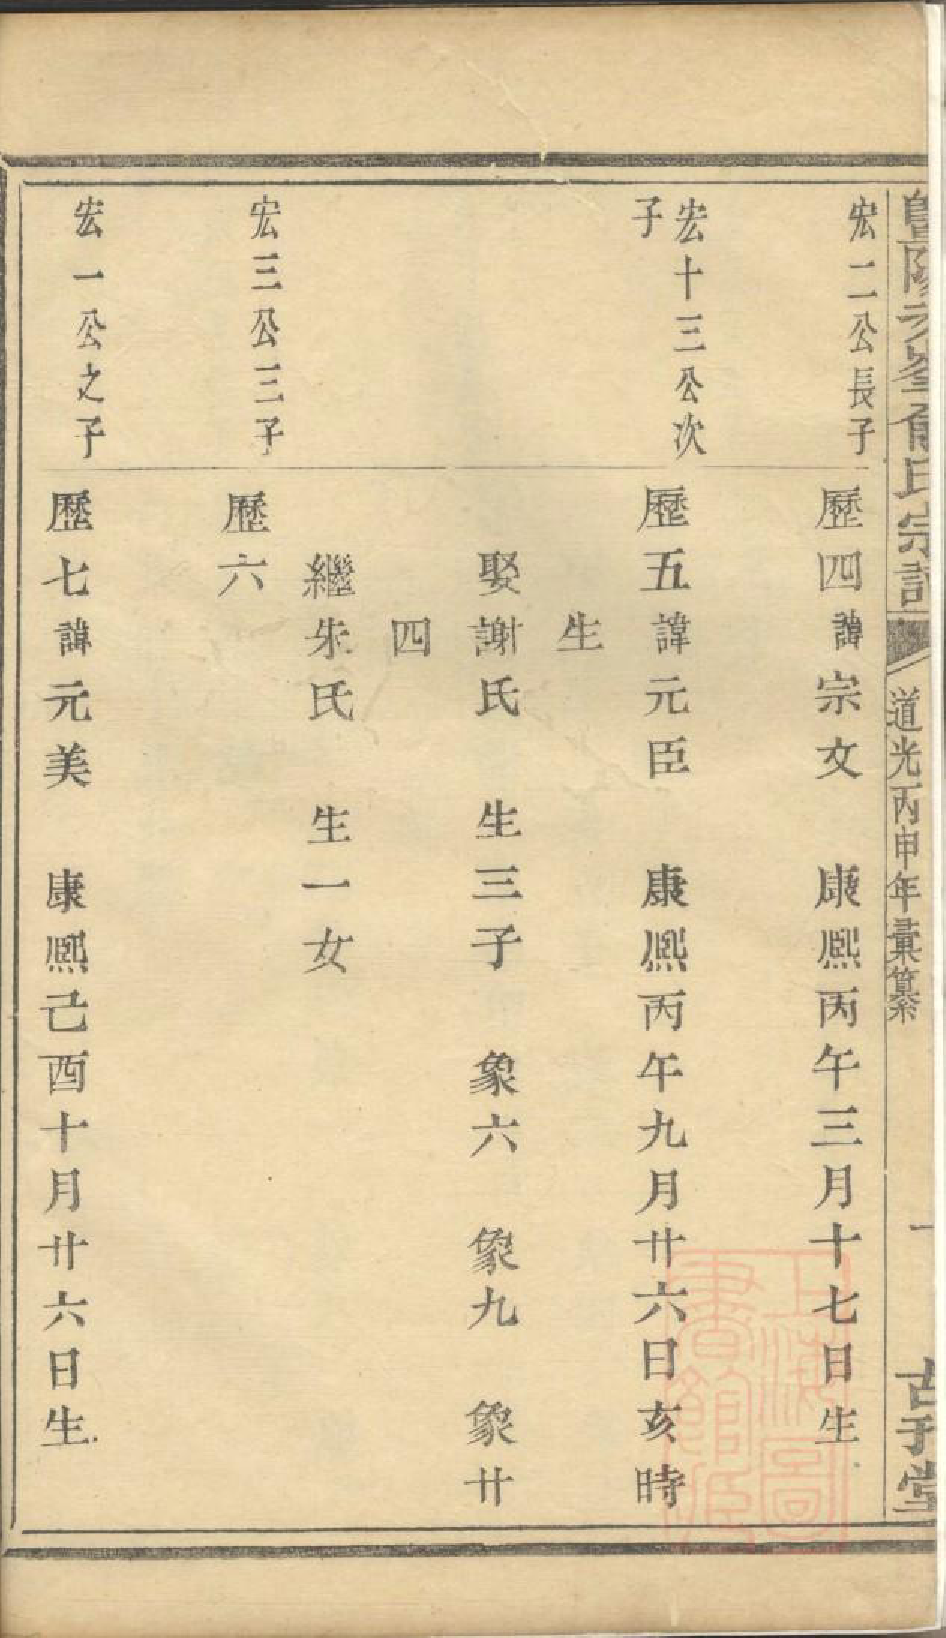 暨陽峯俞氏宗譜 道光丙申年彙纂 一 堂
宏二公長子
歷四諱宗文 康熙丙午三月十七日生
宏十三公次
子
歷五諱元臣 康熙丙午九月廿六日亥時
生
娶謝氏 生三子 象六 象九 象廿
四
繼朱氏 生一女
宏三公三子
歷六
宏一公之子
歷七諱元美 康熙己酉十月廿六日生
上海圖書館藏